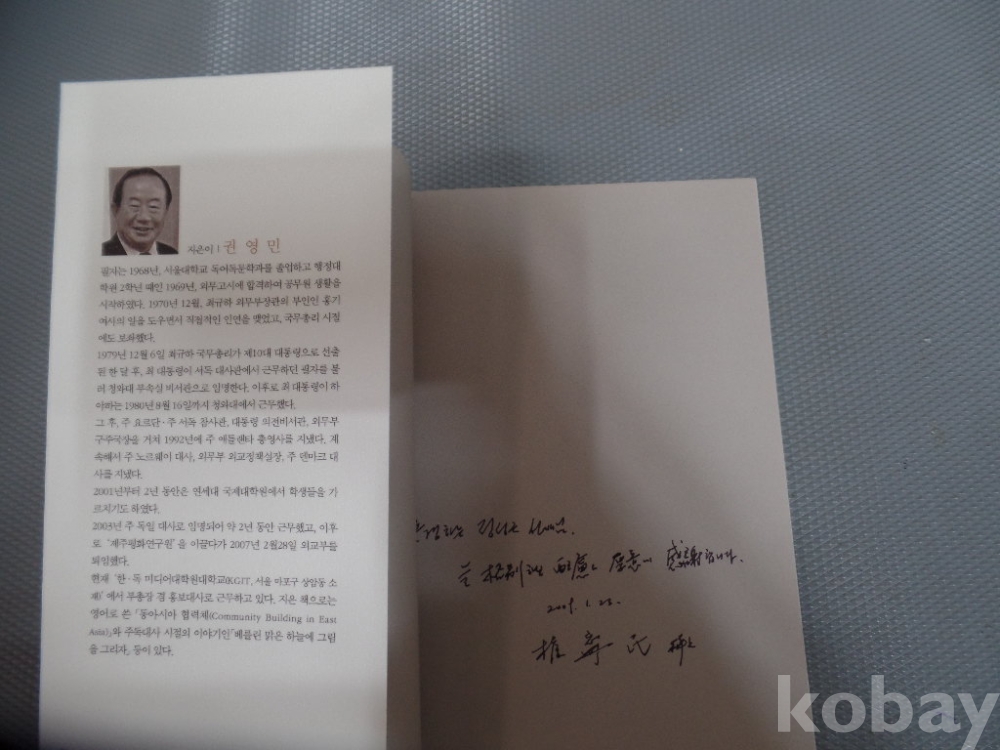 지은이 | 권영민
필자는 1968년, 서울대학교 독어독문학과를 졸업하고 행정대
학원 2학년 때인 1969년, 외무고시에 합격하여 공무원 생활을
시작하였다. 1970년 12월, 최규하 외무부장관의 부인인 홍기
여사의 일을 도우면서 직접적인 인연을 맺었고, 국무총리 시절
에도 보좌했다.
1979년 12월 6일 최규하 국무총리가 제10대 대통령으로 선출
된 한 달 후, 최 대통령이 서독 대사관에서 근무하던 필자를 불
러 청와대 부속실 비서관으로 임명한다. 이후로 최 대통령이 하
야하는 1980년 8월 16일까지 청와대에서 근무했다.
그 후, 주 요르단·주 서독 참사관, 대통령 의전비서관, 외무부
구주국장을 거쳐 1992년에 주 애틀랜타 총영사를 지냈다. 계
속해서 주 노르웨이 대사, 외무부 외교정책실장, 주 덴마크 대
사를 지냈다.
2001년부터 2년 동안은 연세대 국제대학원에서 학생들을 가
르치기도 하였다.
2003년 주 독일 대사로 임명되어 약 2년 동안 근무했고, 이후
로 '제주평화연구원'을 이끌다가 2007년 2월 28일 외교부를
퇴임했다.
현재 '한·독 미디어대학원대학교(KGIT, 서울 마포구 상암동 소
재)'에서 부총장 겸 홍보대사로 근무하고 있다. 지은 책으로는
영어로 쓴 「동아시아 협력체(Community Building in East
Asia)」와 주독대사 시절의 이야기인 「베를린 맑은 하늘에 그림
을 그리자」 등이 있다.
感謝합니다.
2009. 1. 28.
權寧民
kobay